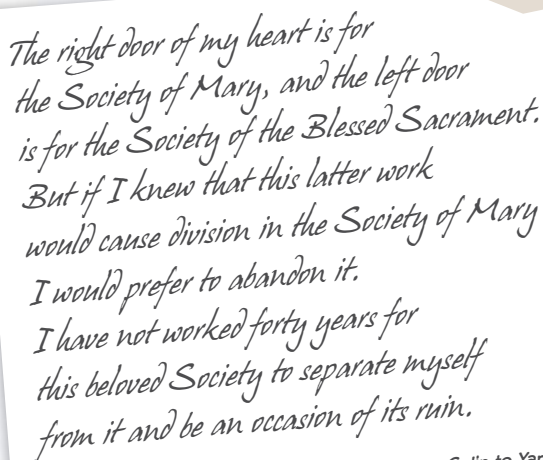 The right door of my heart is for
the Society of Mary, and the left door
is for the Society of the Blessed Sacrament.
But if I knew that this latter work
would cause division in the Society of Mary
I would prefer to abandon it.
I have not worked forty years for
this beloved Society to separate myself
from it and be an occasion of its ruin.